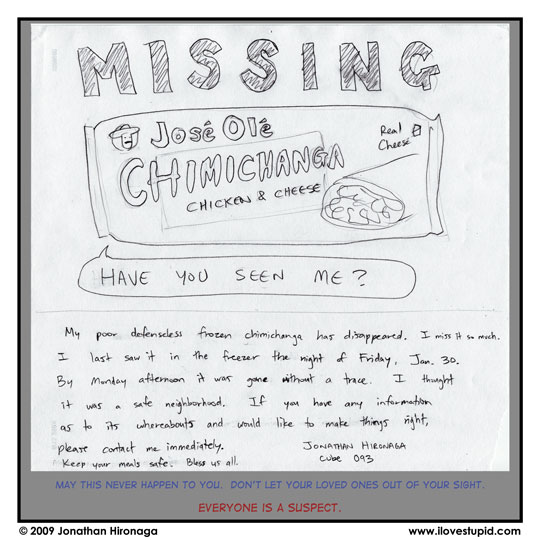 MISSING
José Olé
Real Cheese
CHIMICHANGA
CHICKEN & CHEESE
HAVE YOU SEEN ME?
My poor defenseless frozen chimichanga has disappeared. I miss it so much.
I last saw it in the freezer the night of Friday, Jan. 30.
By Monday afternoon it was gone without a trace. I thought
it was a safe neighborhood. If you have any information
as to its whereabouts and would like to make things right,
please contact me immediately.
JONATHAN HIRONAGA
CUBE 093
Keep your meals safe. Bless us all.
MAY THIS NEVER HAPPEN TO YOU. DON'T LET YOUR LOVED ONES OUT OF YOUR SIGHT.
EVERYONE IS A SUSPECT.
© 2009 Jonathan Hironaga
www.ilovestupid.com